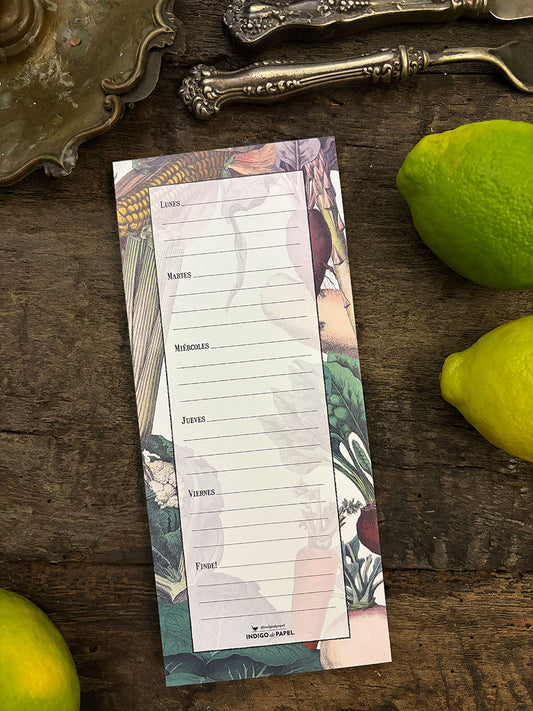 LUNES
MARTES
MIÉRCOLES
JUEVES
VIERNES
FINDE!
@indigodepapel
INDIGO de PAPEL.